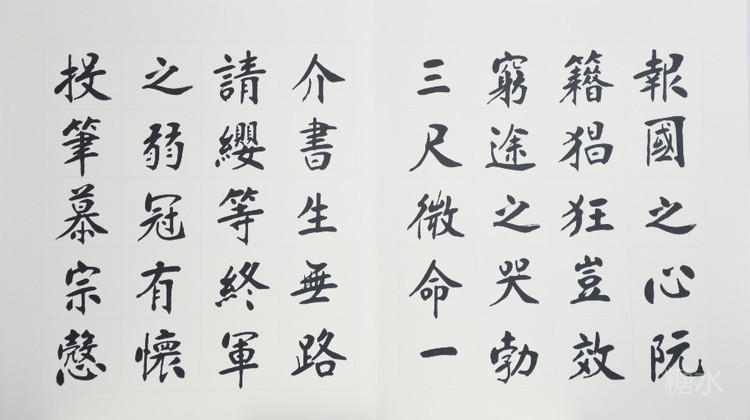 報國之心阮
籍猖狂豈效
窮途之哭勃
三尺微命一
介書生無路
請纓等終軍
之弱冠有懷
投筆慕宗愨
糖水